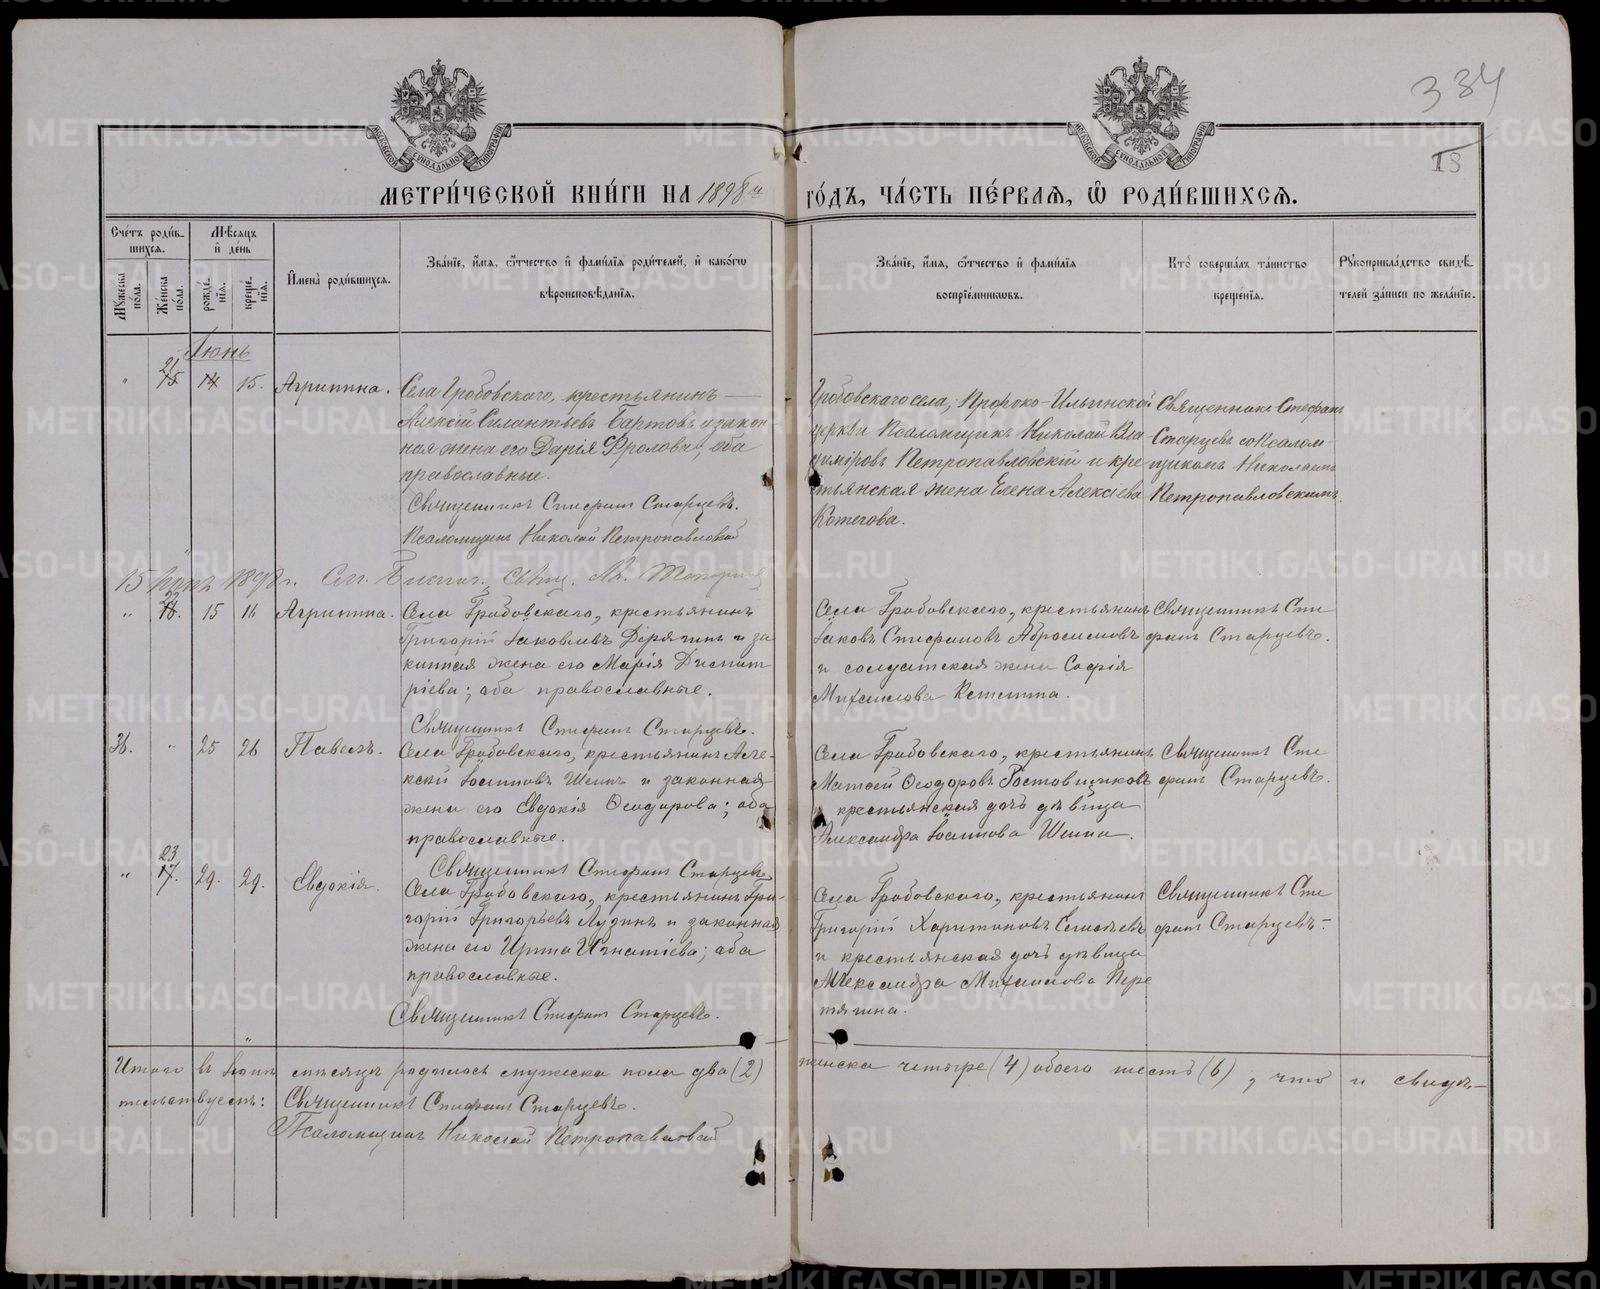 334
13
МЕТРИ́ЧЕСКОЙ КНИ́ГИ НА 1898й ГО́ДЪ, ЧА́СТЬ ПЕ́РВАѦ, Ѡ҆ РОДИ́ВШИХСѦ.
Сче́тъ роди́вшихсѧ.
Мѣ́сѧцъ и҆ де́нь
Мꙋ́жеска по́ла.
Же́нска по́ла.
рожде́нїѧ.
креще́нїѧ.
И҆мена̀ роди́вшихсѧ.
Зва́нїе, и҆́мѧ, ѻ҆́тчество и҆ фами́лїѧ роди́телей, и҆ како́гѡ
вѣроисповѣ́данїѧ.
Зва́нїе, и҆́мѧ, ѻ҆́тчество и҆ фами́лїѧ
воспрїе́мникѡвъ.
Кто̀ соверша́лъ та́инство
креще́нїѧ.
Рꙋкоприкла́дство свидѣ́телей за́писи по жела́нїю.
Іюнь
" 21 15 14 15. Агриппина.
Села Гробовскаго, крестьянинъ
Алексій Силантьевъ Бартовъ и закон-
ная жена его Дарія Фролова, оба
православные.
Священникъ Стефанъ Старцевъ.
Псаломщикъ Николай Петропавловскій
Гробовскаго села, Пророко-Ильинской
церкви Псаломщикъ Николай Вла
диміровъ Петропавловскій и кре
стьянская жена Елена Алексіева
Котегова.
Священникъ Стефанъ
Старцевъ со Псалом-
щикомъ Николаемъ
Петропавловскимъ.
15 1898 г.
" 22 15 16 Агриппина.
Села Гробовскаго, крестьянинъ
Григорій Іаковлевъ Дерягинъ и за
конная жена его Марія Димит
ріева; оба православные.
Священникъ Стефанъ Старцевъ.
Села Гробовскаго, крестьянинъ
Іаковъ Стефановъ Абросимовъ
и солдатская жена Софія
Михаилова
Священникъ Сте
фанъ Старцевъ.
36. " 25 26 Павелъ.
Села Гробовскаго, крестьянинъ Але-
ксій Іосиповъ Шинъ и законная
жена его Евдокія Ѳеодорова; оба
православные.
Священникъ Стефанъ Старцевъ
Села Гробовскаго, крестьянинъ
Матѳей Ѳеодоровъ Ростовщиковъ
и крестьянская дочь дѣвица
Александра Іосипова Шина.
Священникъ Сте
фанъ Старцевъ.
" 23 17. 29. 29. Евдокія.
Села Гробовскаго, крестьянинъ Гри-
горій Григорьевъ Лузинъ и законная
жена его Ирина Игнатіева; оба
православные.
Священникъ Стефанъ Старцевъ.
Села Гробовскаго, крестьянинъ
Григорій Харитоновъ
и крестьянская дочь дѣвица
Александра Михаилова Пере
тягина.
Священникъ Сте
фанъ Старцевъ.
Итого въ Іюнѣ мѣсяцѣ родилось мужеска пола два (2) женска четыре (4) обоего шесть (6), что и свидѣ-
тельствуемъ: Священникъ Стефанъ Старцевъ.
Псаломщикъ Николай Петропавловскій
METRIKI.GASO-URAL.RU